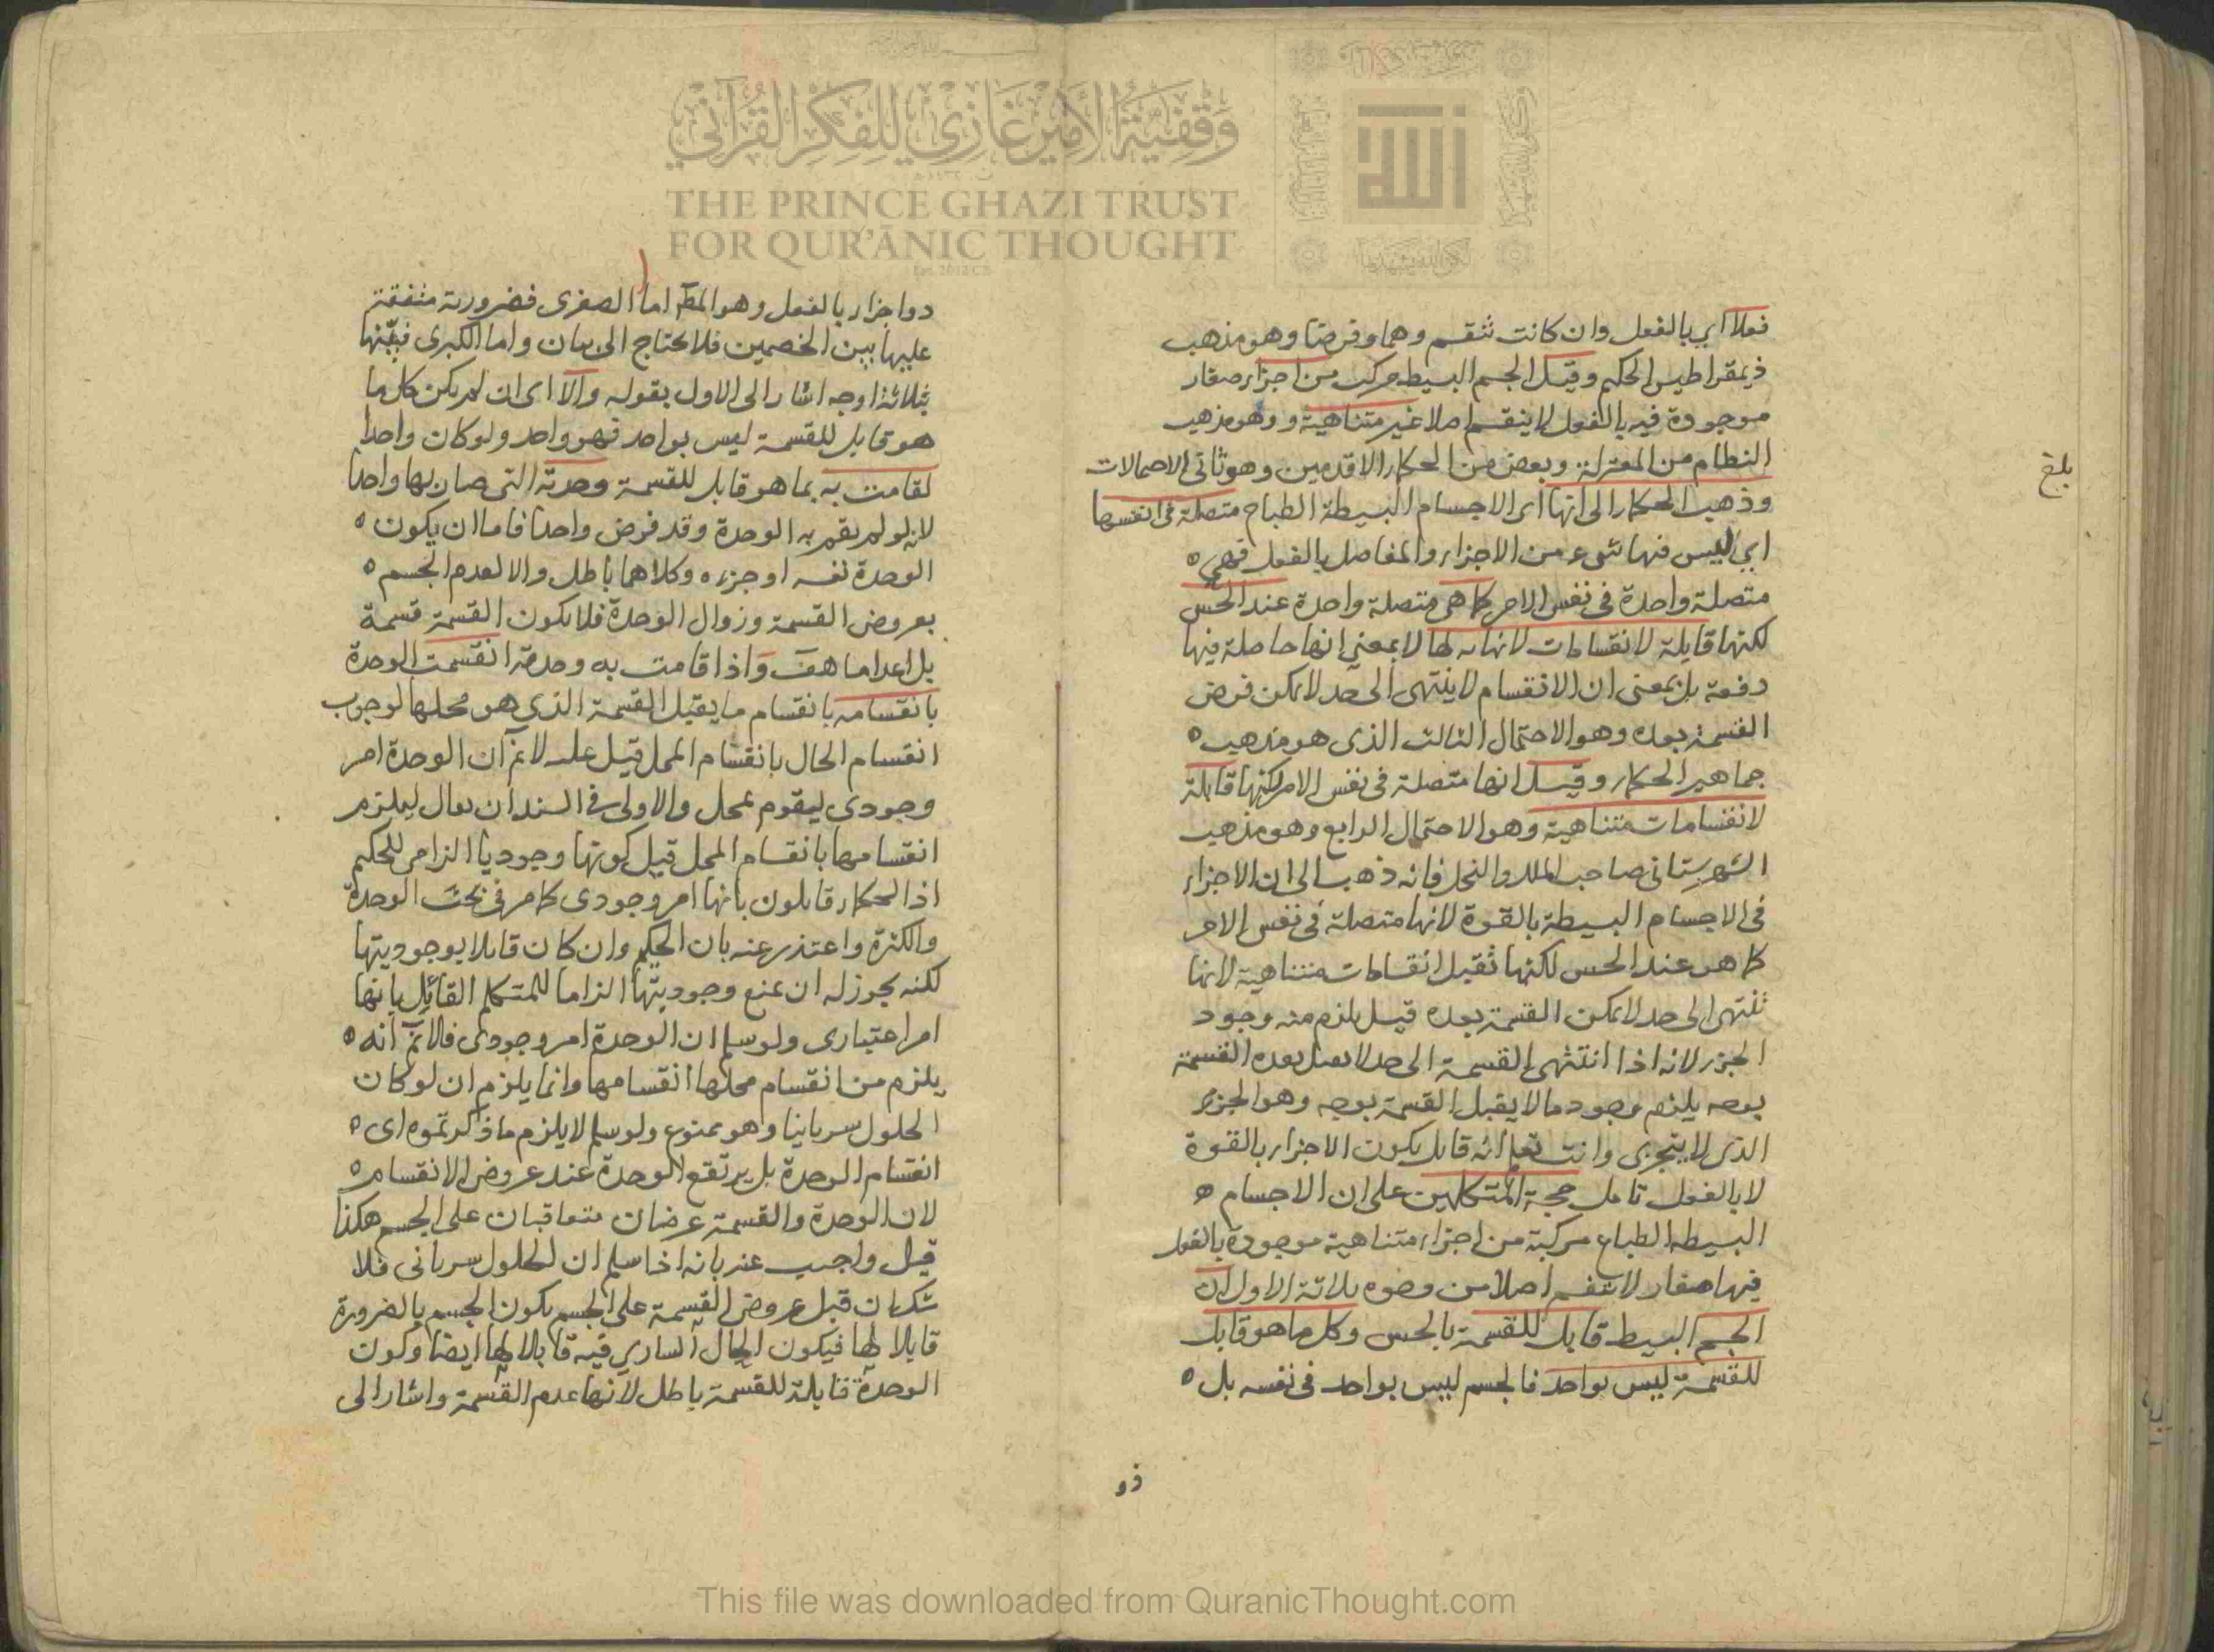 وقفية الأمير غازي للفكر القرآني
THE PRINCE GHAZI TRUST
FOR QUR'ĀNIC THOUGHT
فعلا اى بالفعل وان كانت تنقسم وهما وفرضا وهو مذهب
ذيمقراطيس الحكيم وقيل الجسم البسيط مركب من اجزاء صغار
موجودة فيه بالفعل لا ينقسم اصلا غير متناهية و وهو مذهب
النظام من المعتزلة وبعض من الحكماء الاقدمين وهو ثانى الاحتمالات
وذهب الحكماء الى انها اى الاجسام البسيطة الطباع متصلة فى انفسها
اى ليس فيها شىء من الاجزاء والمفاصل بالفعل فهى ه
متصلة واحدة فى نفس الامر كما هى متصلة واحدة عند الحس
لكنها قابلة لانقسامات لا نهاية لها لا بمعنى انها حاصلة فيها
دفعة بل بمعنى ان الانقسام لا ينتهى الى حد لا يمكن فرض
القسمة بعده وهو الاحتمال الثالث الذى هو مذهب ه
جماهير الحكماء وقيل انها متصلة فى نفس الامر لكنها قابلة
لانقسامات متناهية وهو الاحتمال الرابع وهو مذهب
الشهرستانى صاحب الملل والنحل فانه ذهب الى ان الاجزاء
فى الاجسام البسيطة بالقوة لانها متصلة فى نفس الامر
كما هو عند الحس لكنها تقبل انقسامات متناهية لانها
تنتهى الى حد لا يمكن القسمة بعده قيل يلزم منه وجود
الجزء لانه اذا انتهى القسمة الى حد لا يقبل بعده القسمة
بوجه يلزم وجود ما لا يقبل القسمة بوجه وهو الجزء
الذى لا يتجزى وانت تعلم انه قايل بكون الاجزاء بالقوة
لا بالفعل تامل حجة المتكلمين على ان الاجسام ه
البسيطة الطباع مركبة من اجزاء متناهية موجودة بالفعل
فيها صغار لا تنقسم اصلا من وجوه ثلاثة الاول ان
الجسم البسيط قابل للقسمة بالحس وكل ما هو قابل
للقسمة ليس بواحد فالجسم ليس بواحد فى نفسه بل ه
ذو
بلغ
ذوا جزاء بالفعل وهو المط اما الصغرى فضرورية متفقة
عليها بين الخصمين فلا يحتاج الى بيان واما الكبرى فبينها
بثلاثة اوجه اشار الى الاول بقوله والا اى ان لم يكن كل ما
هو قابل للقسمة ليس بواحد فهو واحد ولو كان واحدا
لقامت به بما هو قابل للقسمة وحدته التى صار بها واحدا
لانه لو لم يقم به الوحدة وقد فرض واحدا فاما ان يكون ه
الوحدة نفسه او جزءه وكلاهما باطل والا لعدم الجسم ه
بعروض القسمة وزوال الوحدة فلا يكون القسمة قسمة
بل اعداما هف واذا قامت به وحدة انقسمت الوحدة
بانقسامه بانقسام ما يقبل القسمة الذى هو محلها لوجوب
انقسام الحال بانقسام المحل قيل عليه لا نم ان الوحدة امر
وجودى ليقوم بمحل والاولى فى السند ان يقال ليلزم
انقسامها بانقسام المحل قيل كونها وجوديا الزامى للحكيم
اذ الحكماء قايلون بانها امر وجودى كما مر فى بحث الوحدة
والكثرة واعتذر عنه بان الحكيم وان كان قايلا بوجوديتها
لكنه يجوز له ان يمنع وجوديتها الزاما للمتكلم القائل بانها
امر اعتبارى ولو سلم ان الوحدة امر وجودى فلا نم انه ه
يلزم من انقسام محلها انقسامها وانما يلزم ان لو كان
الحلول سريانيا وهو ممنوع ولو سلم لا يلزم ما ذكرتموه اى ه
انقسام الوحدة بل يرتفع الوحدة عند عروض الانقسام ه
لان الوحدة والقسمة عرضان متعاقبان على الجسم هكذا
قيل واجيب عنه بانه اذا سلم ان الحلول سريانى فلا
شك ان قبل عروض القسمة على الجسم يكون الجسم بالضرورة
قابلا لها فيكون الحال السارى فيه قابلا لها ايضا وكون
الوحدة قابلة للقسمة باطل لانها عدم القسمة واشار الى
This file was downloaded from QuranicThought.com